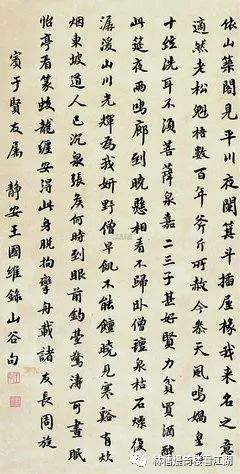 依山築閣見平川夜闌箕斗插屋椽我来名之意
適然老松魁梧數百年斧斤所赦今參天風鳴媧皇五
十弦洗耳不須菩薩泉嘉二三子甚好賢力貧買酒醉
此筵夜雨鳴廊到曉懸相看不歸卧僧氊泉枯石燥復
潺湲山川光輝為我妍野僧早飢不能饘曉見寒谿有炊
烟東坡道人已沉泉張侯何時到眼前釣臺驚濤可晝眠
怡亭看篆蛟龍纏安得此身脱拘攣舟載諸友長周旋
賓于賢友屬 静安王國維錄山谷句